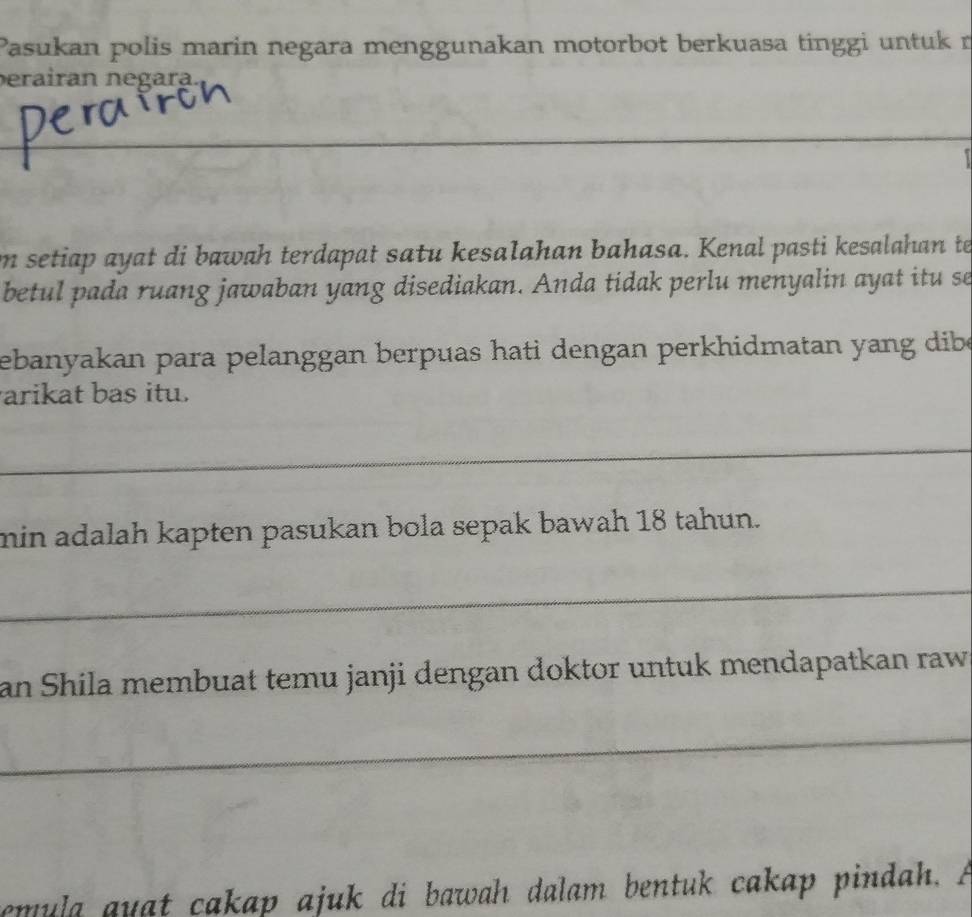 Pasukan polis marin negara menggunakan motorbot berkuasa tinggi untuk
perairan negara.
perairan
setiap ayat di bawah terdapat satu kesalahan bahasa. Kenal pasti kesalahan
betul pada ruang jawaban yang disediakan. Anda tidak perlu menyalin ayat itu se
ebanyakan para pelanggan berpuas hati dengan perkhidmatan yang dibe
arikat bas itu.
min adalah kapten pasukan bola sepak bawah 18 tahun.
an Shila membuat temu janji dengan doktor untuk mendapatkan raw
emula ayat cakap ajuk di bawah dalam bentuk cakap pindah. A